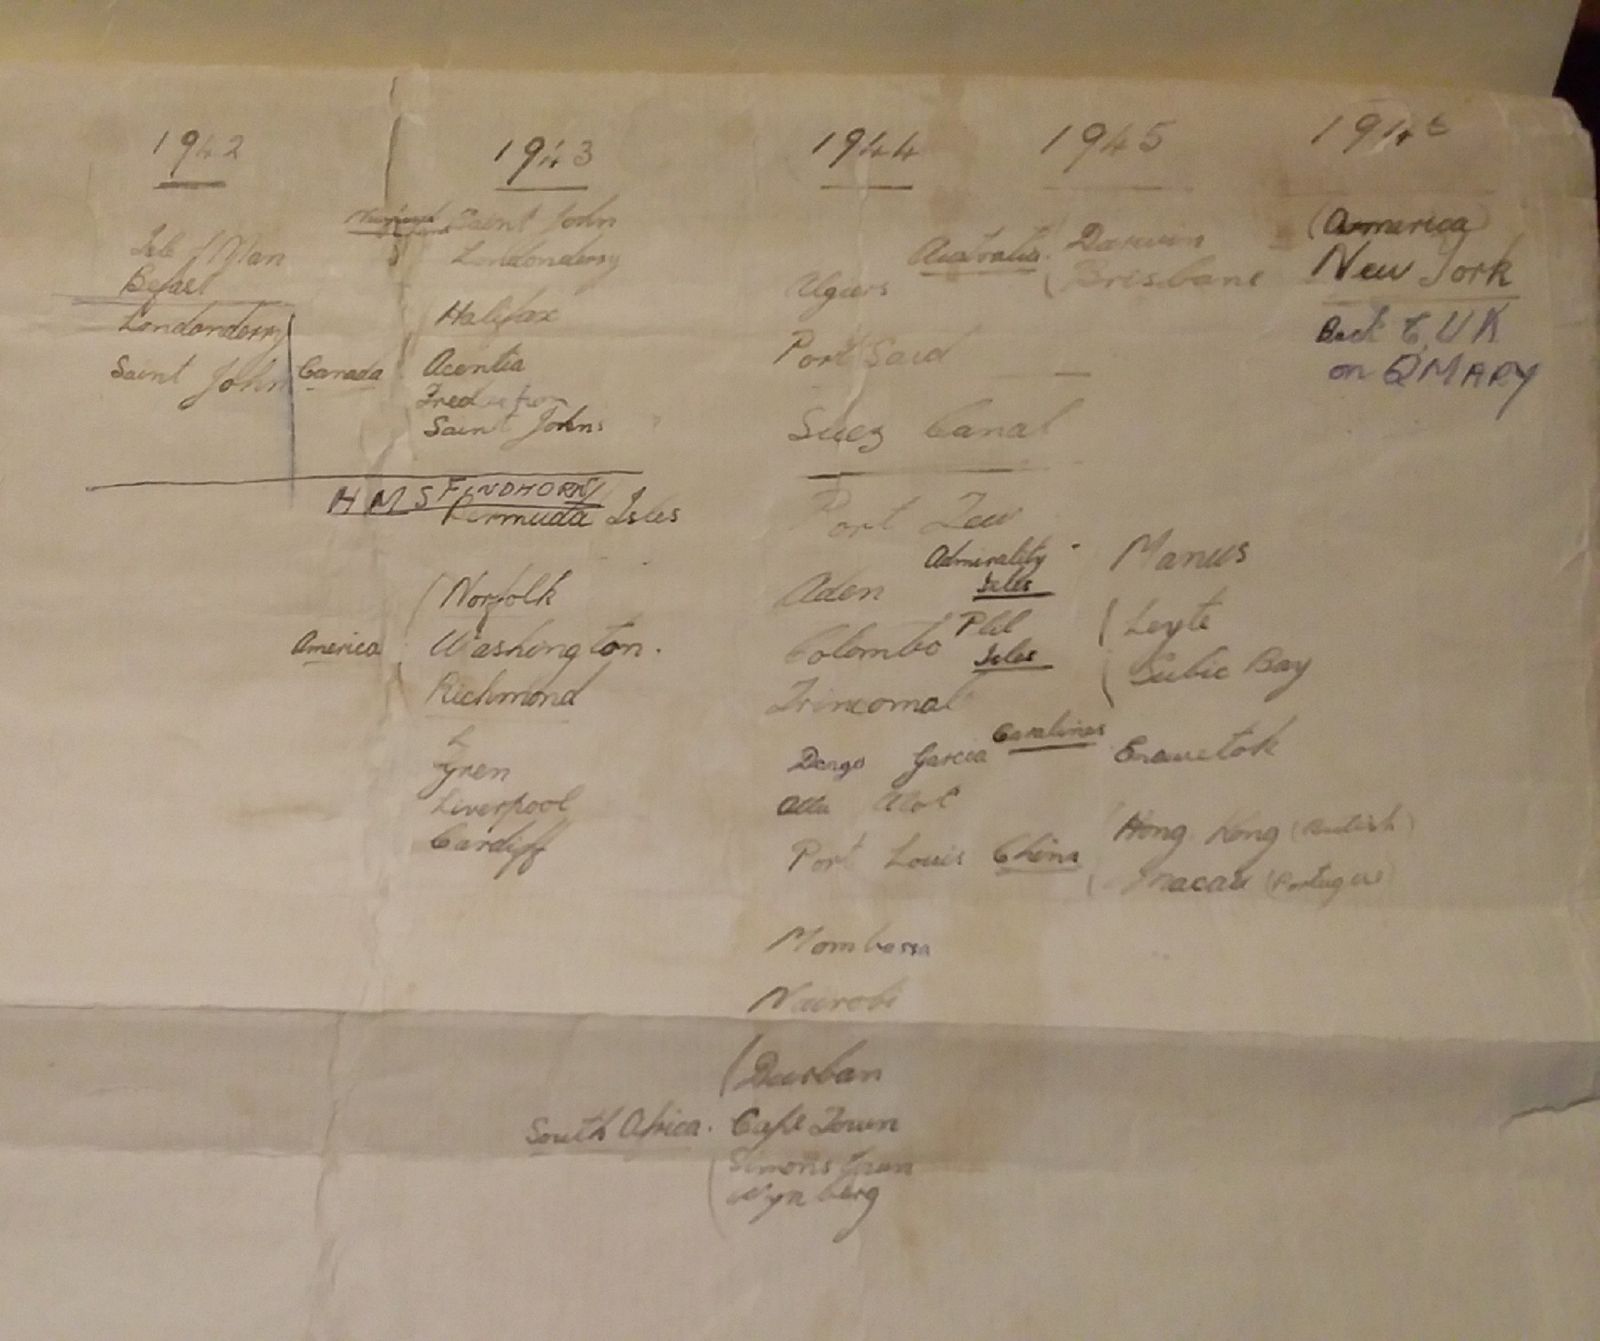 1942
Isle of Man
Belfast
Londonderry
Saint John
Canada
1943
Saint John
Londonderry
Halifax
Acentia
Saint Johns
HMS FINDHORN
Bermuda Isles
America
Norfolk
Washington.
Richmond
Gren
Liverpool
Cardiff
1944
Algiers
Port Said
Suez Canal
Port Tew
Aden
Colombo
Trincomal
Dargo Garcia
Atol
Port Louis
Mombassa
Nairobi
South Africa.
Durban
Cape Town
Simons Town
Wynberg
1945
Australia.
Darwin
Brisbane
Admirality Isles
Manus
Phil Isles
Leyte
Subic Bay
Caralines
Enewetok
China
Hong Kong (British)
Macau (Portugese)
1946
(America)
New York
Back to UK
on QMARY